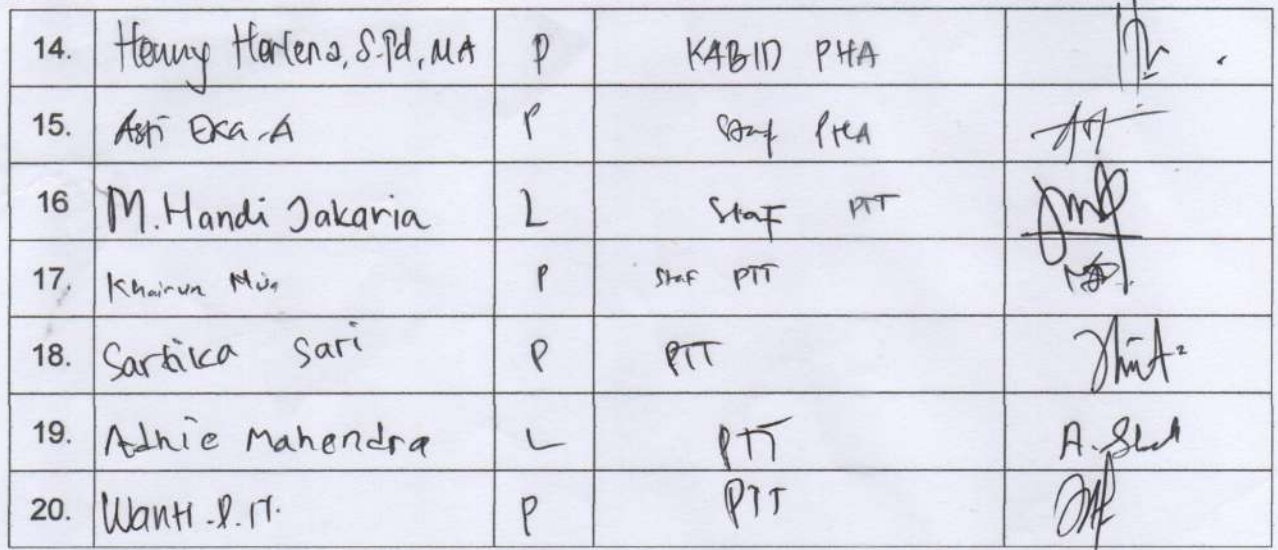 14. Henny Herlena, S.Pd, MA P KABID PHA
15. Asri Eka.A P Staf PHA
16 M. Handi Jakaria L Staf PTT
17. Khairun P Staf PTT
18. Sartika Sari P PTT
19. Adhie Mahendra L PTT
20. Wanti P PTT